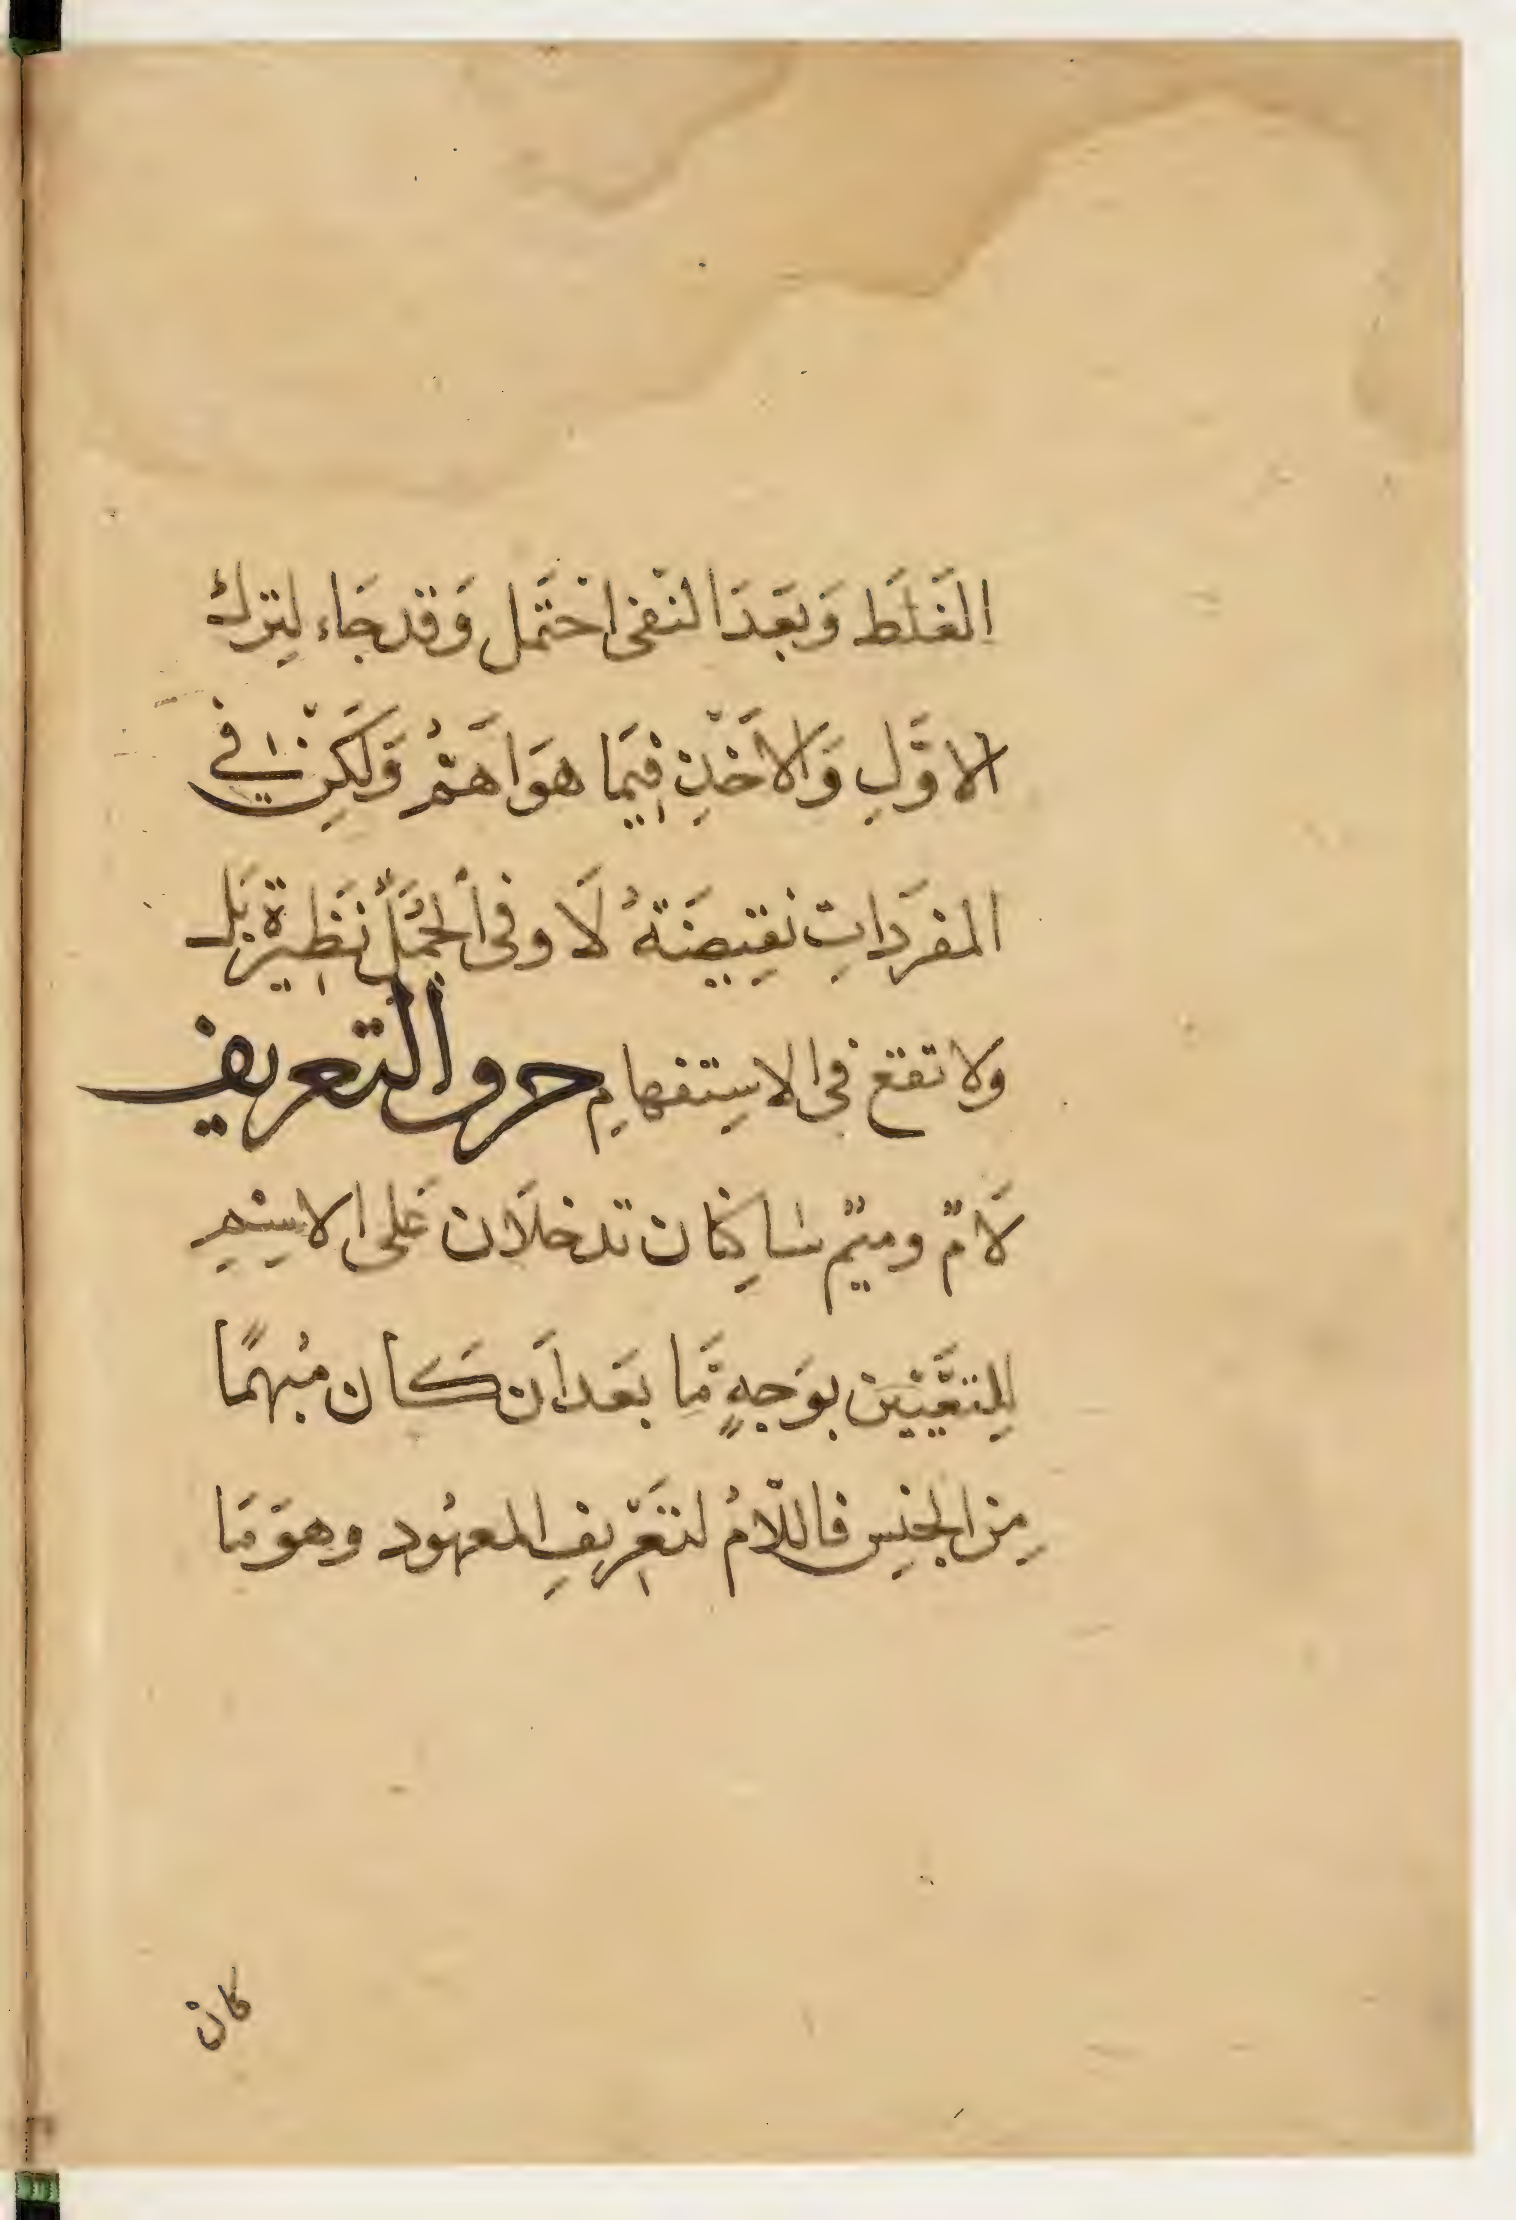 الغَلَطَ وَبَعْدَ النَّفى احْتَمَل وَقد جَاء لِترك
الاوَّلِ وَالاَخْذِ فِيمَا هوَ اَهَمُّ وَلَكِنْ في
المفرَدَاتِ نقيضَةُ لَا وفى الجُمَلِ نَظِيرَة بَل
ولا تقع فى الاسِتفهامِ حرف التعريف
لَامٌ وميمٌ سَاكِنان تدخلَان عَلى الاسِمِ
لِلتَعْيين بوَجهٍ مَّا بَعدَ اَن كَان مُبهمًا
مِن الجنسِ فاللّامُ لتَعْرِيفِ المعهُود وهوَ مَا
كان